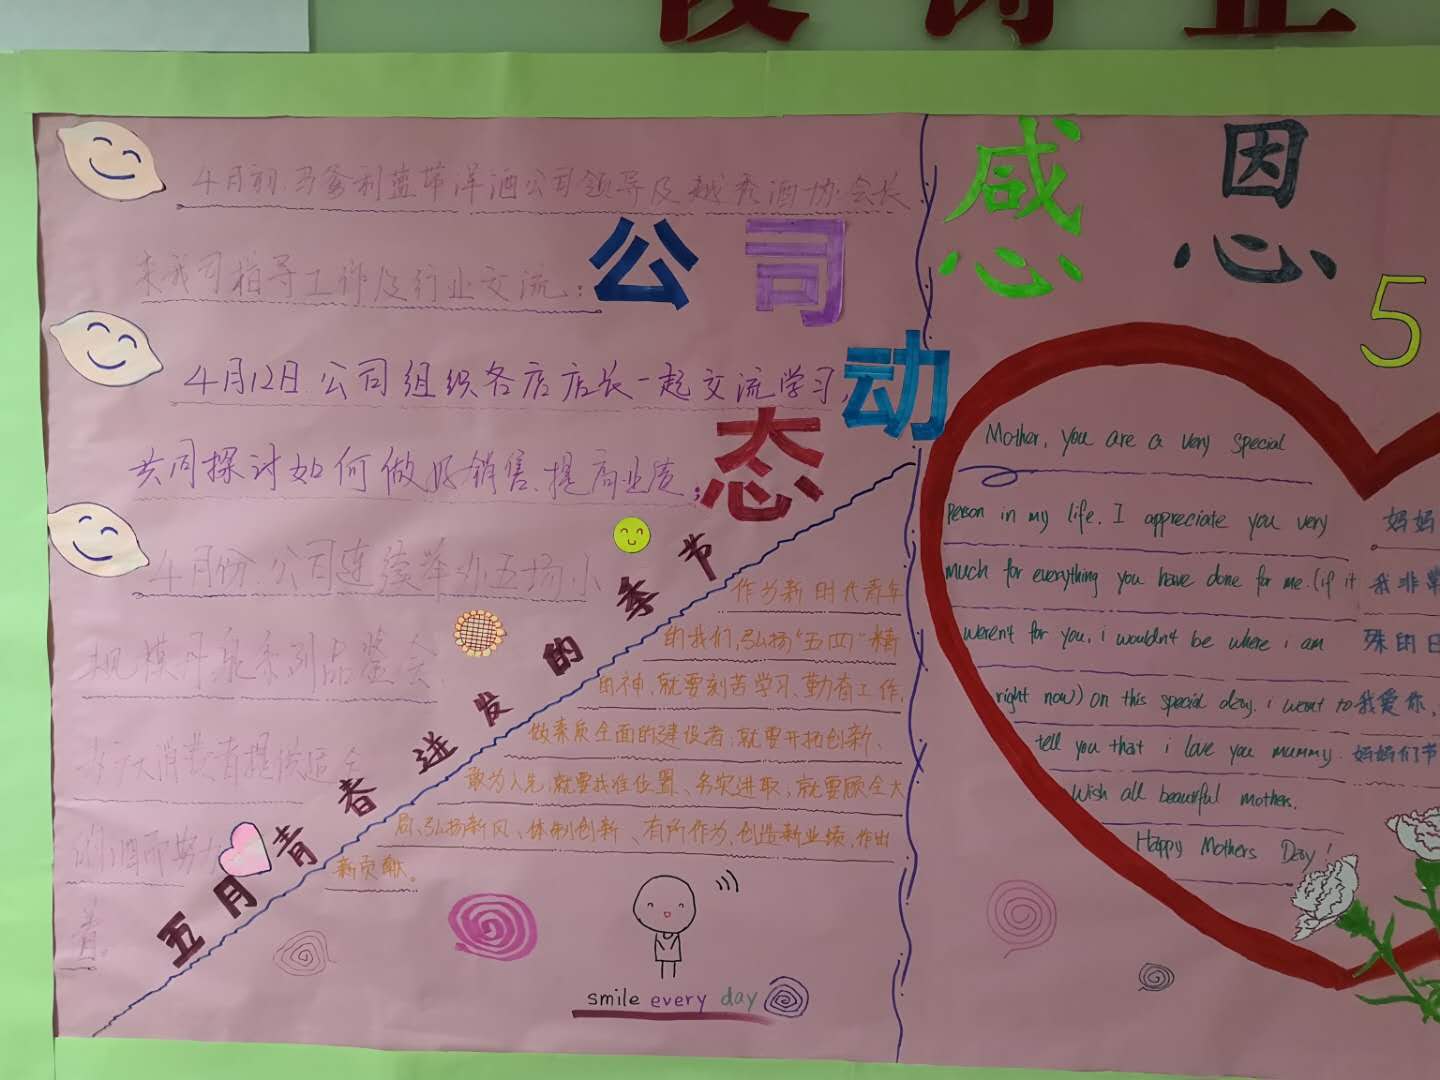 公司动态
4月初.马爹利蓝带洋酒公司领导及越秀酒协会长
来我司指导工作及行业交流;
4月12日.公司组织各店店长一起交流学习,
共同探讨如何做好销售、提高业绩;
4月份.公司连续举办五场小
规模丹泉系列品鉴会.
为广大消费者提供
的酒而努力
着。
五月青春迸发的季节
作为新时代青年
的我们,弘扬"五四"精
神,就要刻苦学习、勤奋工作,
做素质全面的建设者;就要开拓创新、
敢为人先;就要找准位置、务实进取;就要顾全大
局、弘扬新风、体制创新、有所作为,创造新业绩,作出
新贡献。
smile every day
感恩
5
Mother, you are a very special
person in my life. I appreciate you very
much for everything you have done for me. (if it
weren't for you, i wouldn't be where i am
right now) on this special day. i want to
tell you that i love you mummy.
Wish all beautiful mothers.
Happy Mothers Day!
妈妈
我非常
殊的日
我爱你,
妈妈们节